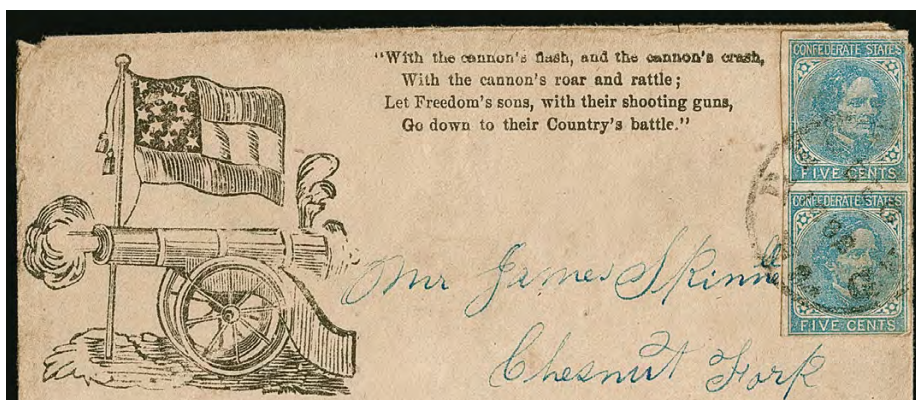 "With the cannon's flash, and the cannon's crash,
With the cannon's roar and rattle;
Let Freedom's sons, with their shooting guns,
Go down to their Country's battle."
CONFEDERATE STATES
FIVE CENTS
CONFEDERATE STATES
FIVE CENTS
Mr James Skinne
Chesnut Fork